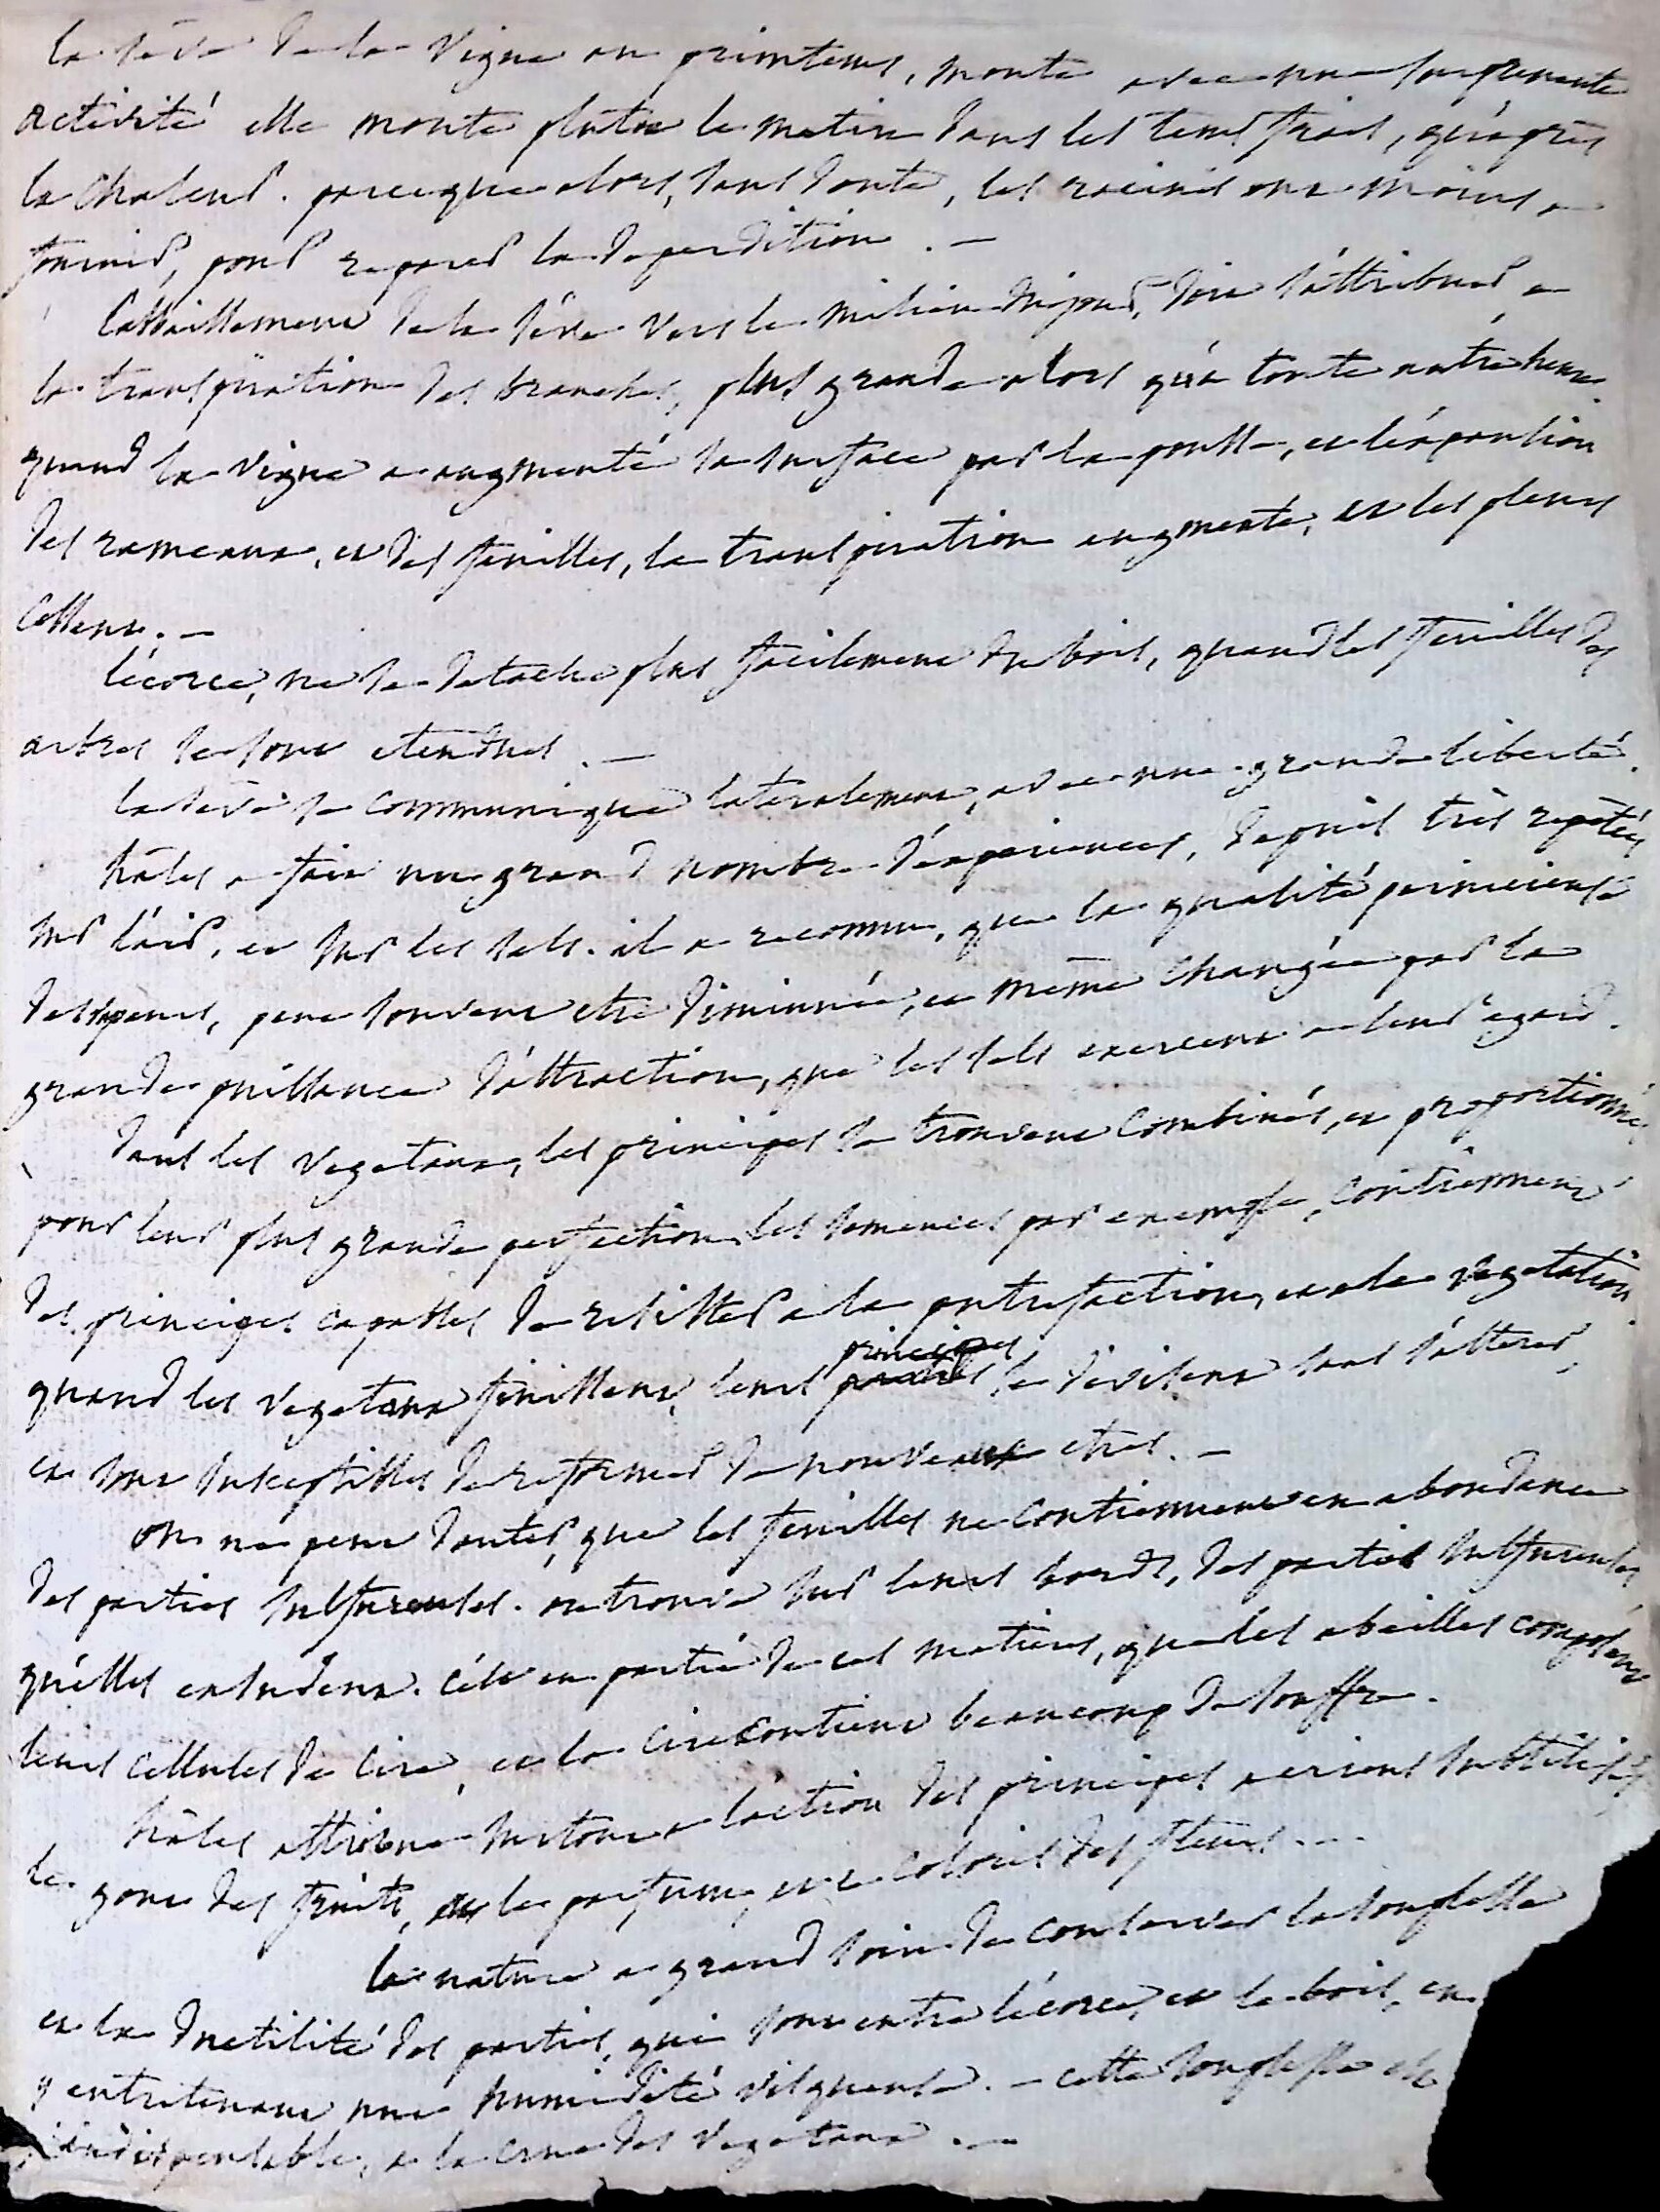 la séve de la vigne au printems, monte avec une surprenante
activité elle monte plutot le matin dans les tems frais, qu'après
la chaleur. parceque alors, sans doute, les racines ont moins a
fournir, pour reparer la deperdition. —
l'abbaissement de la séve vers le milieu du jour, doit s'attribuer a
la transpiration des branches, plus grande alors qu'a toute autre heure.
quand la vigne a augmenté sa surface par la pousse, et l'expansion
des rameaux, et des feuilles, la transpiration augmente, et les pleurs
cessent. —
l'écorce, ne se detache plus facilement du bois, quand les feuilles des
arbres se sont etendues. —
la séve se communique lateralement, avec une grande liberté.
hâles a fait un grand nombre d'éxperiences, depuis très repetées
sur l'air, et sur les sels. il a reconnu, que la qualité pernicieuse
des vapeurs, peut souvent etre diminuée, et même changée par la
grande puissance d'attraction, que les sels exercent a leur egard.
dans les vegetaux, les principes se trouvent combinés, et proportionnés
pour leur plus grande perfection. les semences par exemple, contiennent
des principes capables de resister a la putrefaction, et a la vegetation.
quand les vegetaux finissent, leurs principes se divisent sans s'alterer,
et sont susceptibles de reformer de nouveaux etres. —
on ne peut douter, que les feuilles ne contiennent en abondance
des parties sulfureuses. on trouve sur leurs bords, des parties sulfureuses
qu'elles exsudent. c'est en partie de ces matieres, que les abeilles composent
leurs cellules de cire, et la cire contient beaucoup de souffre.
hâles attribue surtout a l'action des principes aeriens subtilisés
le gout des fruits, et le parfum, et le coloris des fleurs....
la nature a grand soin de conserver la souplesse
et la ductilité des parties, qui sont entre l'écorce, et le bois, en
y entretenant une humidité visqueuse. — cette souplesse est
indispensable, a la crue des vegetaux. —